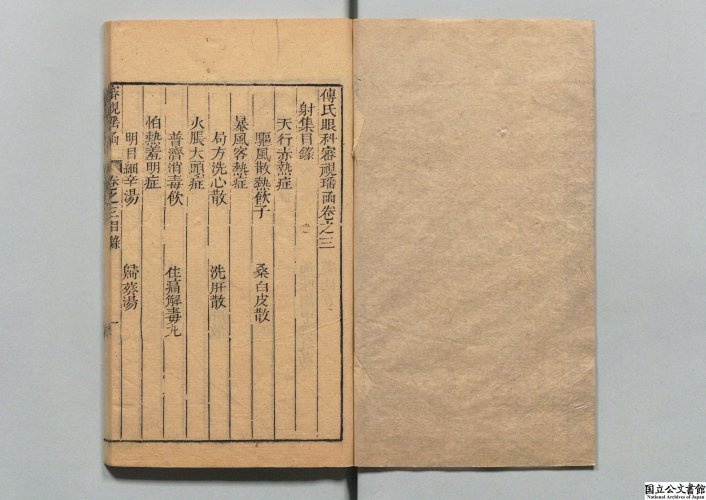 傅氏眼科審視瑤函卷之三
射集目錄
天行赤熱症
驅風散熱飲子 桑白皮散
暴風客熱症
局方洗心散 洗肝散
火脹大頭症
普濟消毒飲 住痛解毒丸
怕熱羞明症
明目細辛湯 歸葵湯
審視瑤函 卷之三目錄 一
国立公文書館
National Archives of Japan